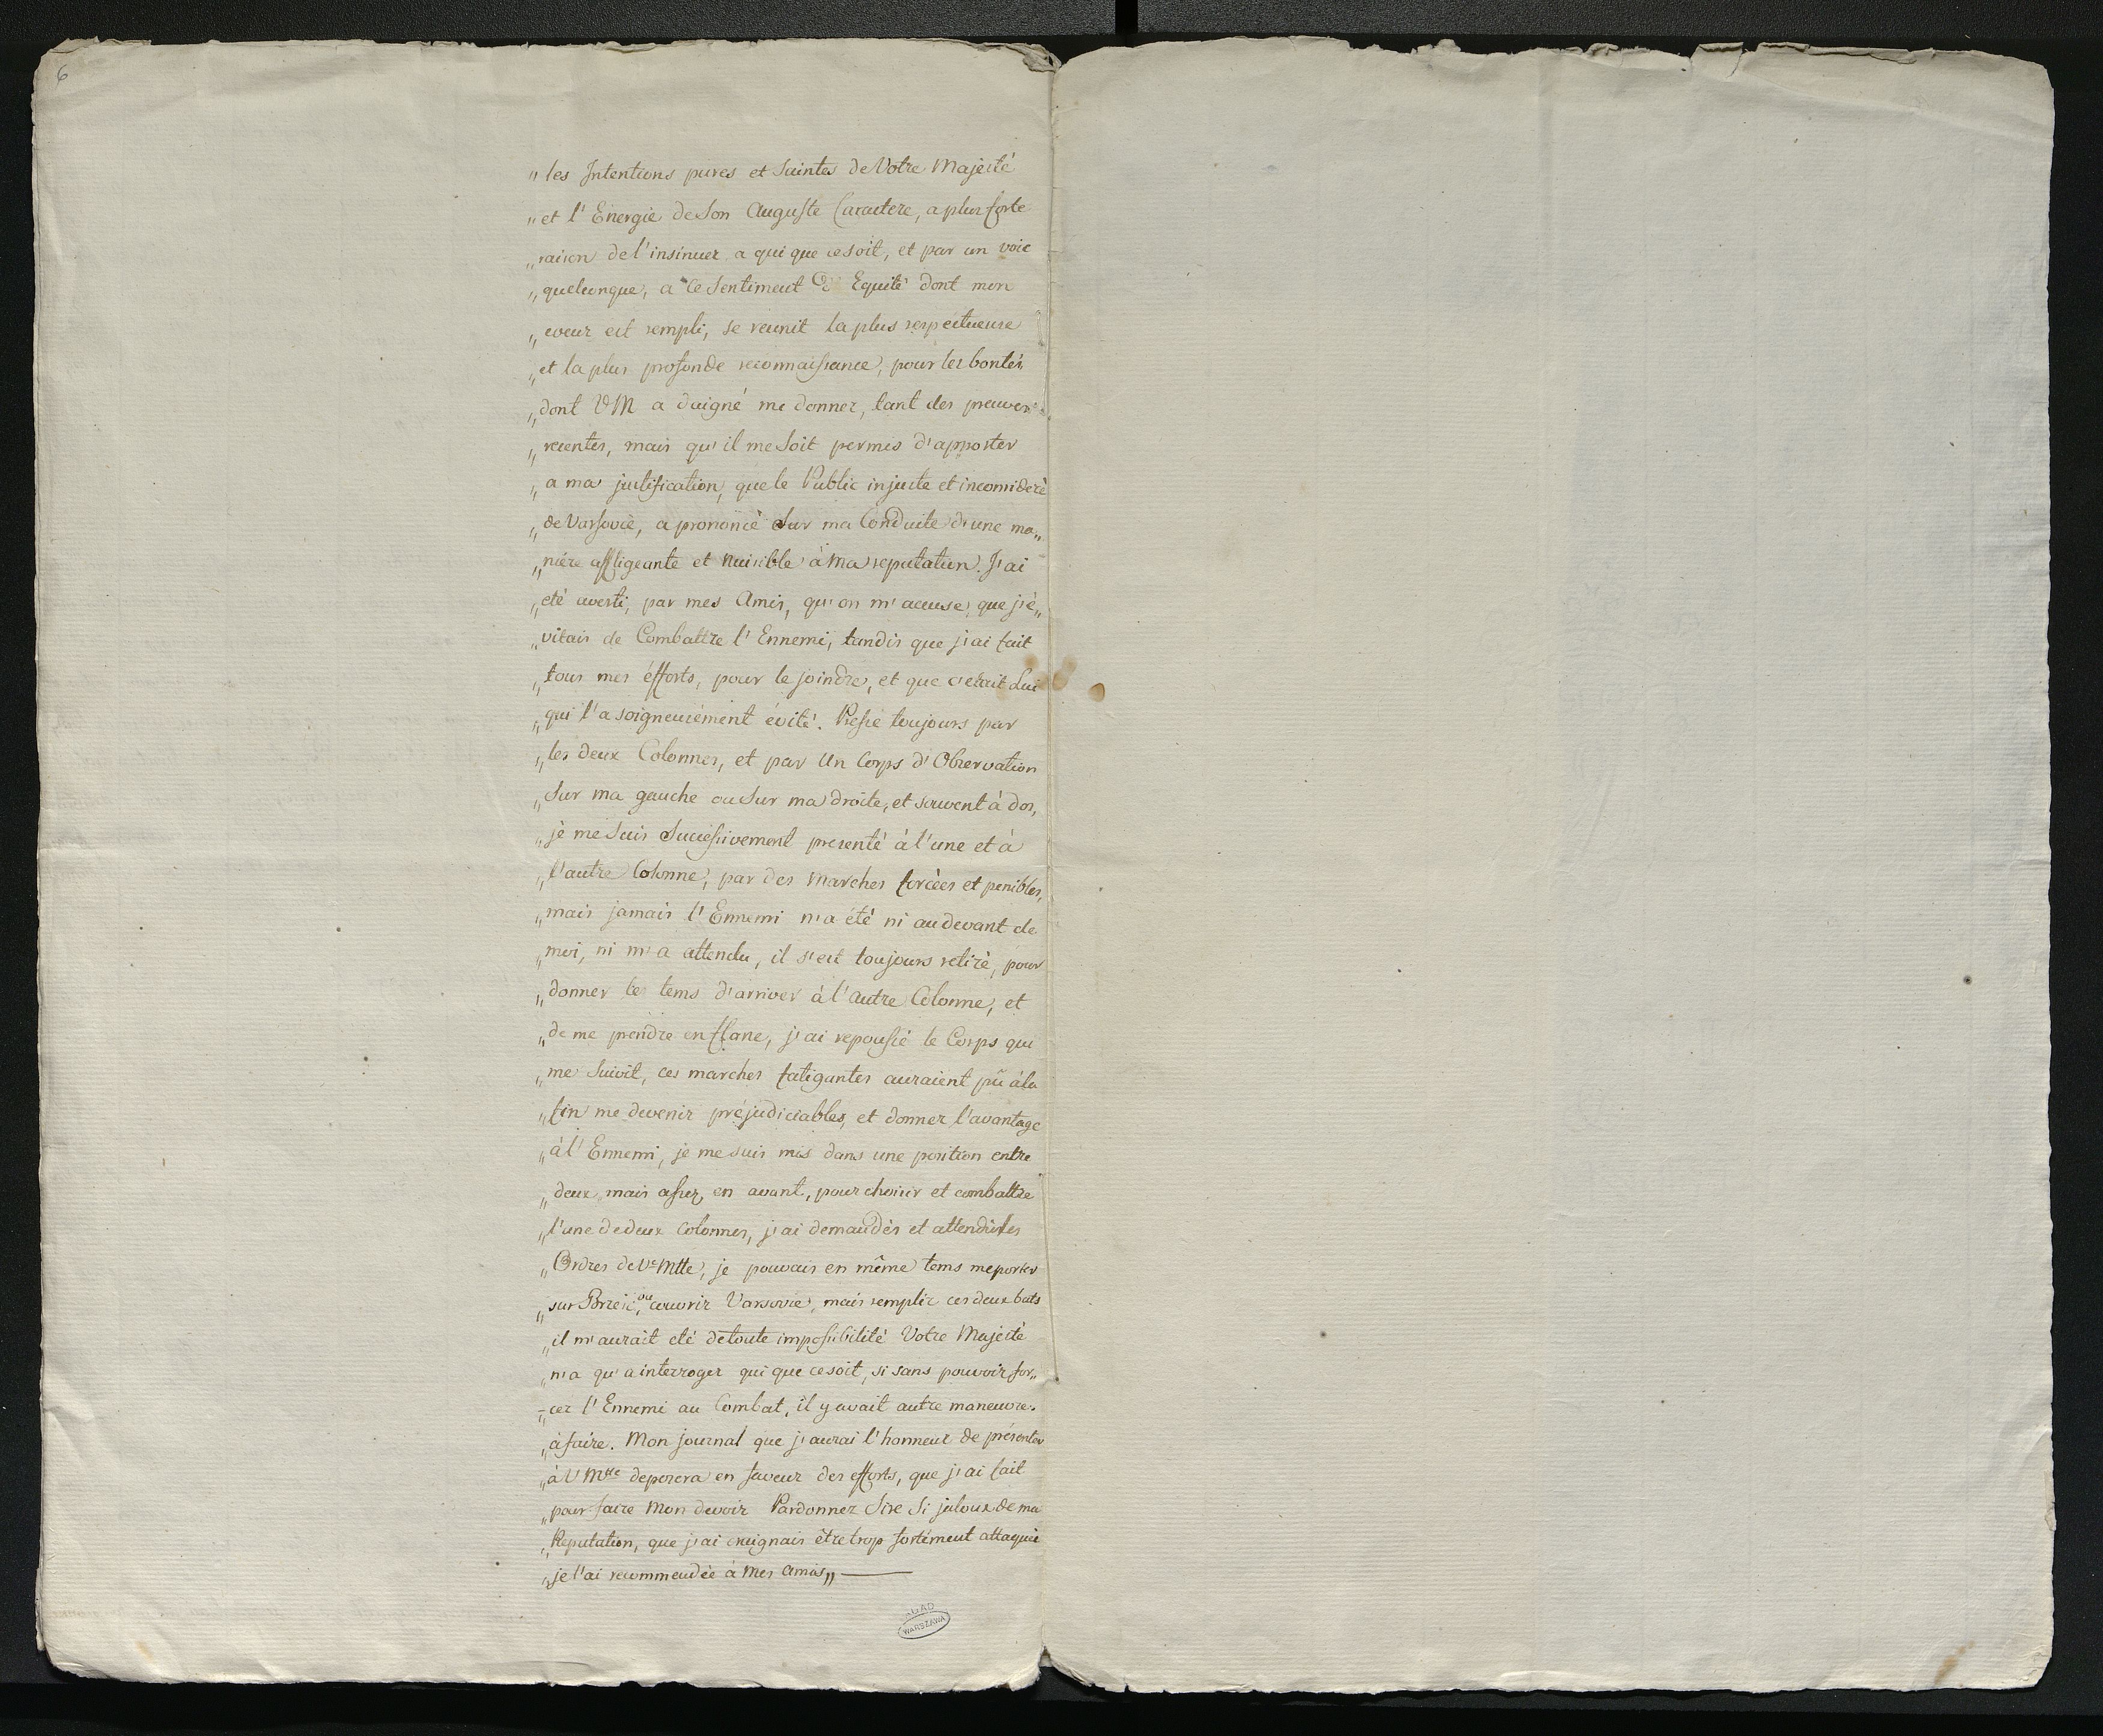 6
„ les Intentions pures et Saintes de Votre Majesté
„ et l'Energie de Son Auguste Caractere, a plus forte
„ raison de l'insinuer a qui que ce soit, et par un voie
„ quelconque, a ce Sentiment d' Equité dont mon
„ coeur est rempli, se reunit la plus respectueuse
„ et la plus profonde reconnaissance, pour les bontés
„ dont V M a daigné me donner, tant des preuves
„ recentes, mais qu'il me Soit permis d'apporter
„ a ma justification, que le Public injuste et inconsideré
„ de Varsovie, a prononcé Sur ma Conduite d'une ma„
„ niére affligeante et Nuisible à Ma reputation. J'ai
„ eté averti, par mes Amis, qu'on m'accuse, que j'é„
„ vitais de Combattre l'Ennemi, tandis que j'ai fait
„ tous mes éfforts, pour le joindre, et que c'etait Lui
„ qui l'a soigneusément évité. Pressé toujours par
„ les deux Colonnes, et par Un Corps d'Observation
„ Sur ma gauche ou Sur ma droite, et souvent à dos,
„ jè me Suis Successivement presenté à l'une et à
„ l'autre Colonne, par des Marches forcées et penibles,
„ mais jamais l'Ennemi n'a été ni au devant de
„ moi, ni m'a attendu, il s'est toujours retiré, pour
„ donner les tems d'arriver à l'autre Colonne, et
„ de me prendre en flanc, j'ai repoussé le Corps qui
„ me Suivit, ces marches fatigantes auraient pû à la
„ fin me devenir préjudiciables, et donner l'avantage
„ à l'Ennemi, je me suis mis dans une position entre
„ deux, mais assez en avant, pour choisir et combattre
„ l'une de deux Colonnes, j'ai demandés et attendu les
„ Ordres de Vre Mtte, je pouvais en même tems me porter
„ sur Brzesc, ou couvrir Varsovie, mais remplir ces deux buts
„ il m'aurait eté de toute impossibilité Votre Majesté
„ n'a qu'a interroger qui que ce soit, si sans pouvoir for„
„ cer l'Ennemi au Combat, il y avait autre maneuvre.
„ à faire. Mon journal que j'aurai l'honneur de présenter
„ à V Mtte deposera en faveur des efforts, que j'ai fait
„ pour faire Mon devoir Pardonnez Sire Si jaloux de ma
„ Reputation, que j'ai craignais être trop fortément attaquée
„ je l'ai recommendée à Mes Amis„
AGAD
WARSZAWA